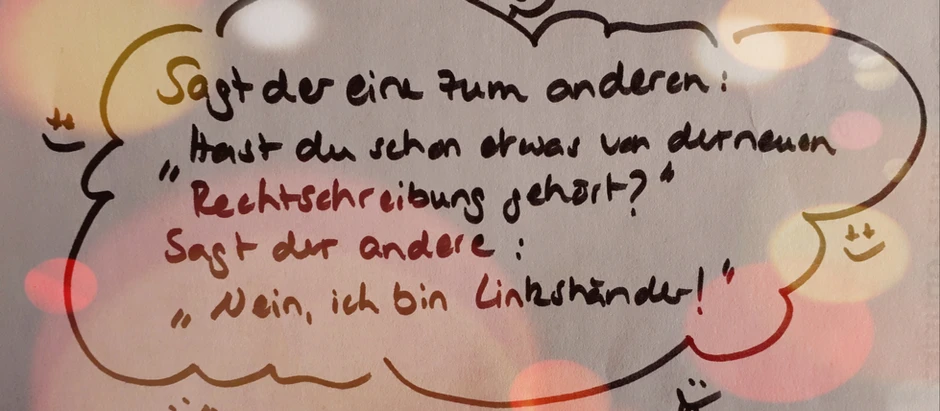 Sagt der eine zum anderen:
„Hast du schon etwas von der neuen
Rechtschreibung gehört?“
Sagt der andere:
„Nein, ich bin Linkshänder!“